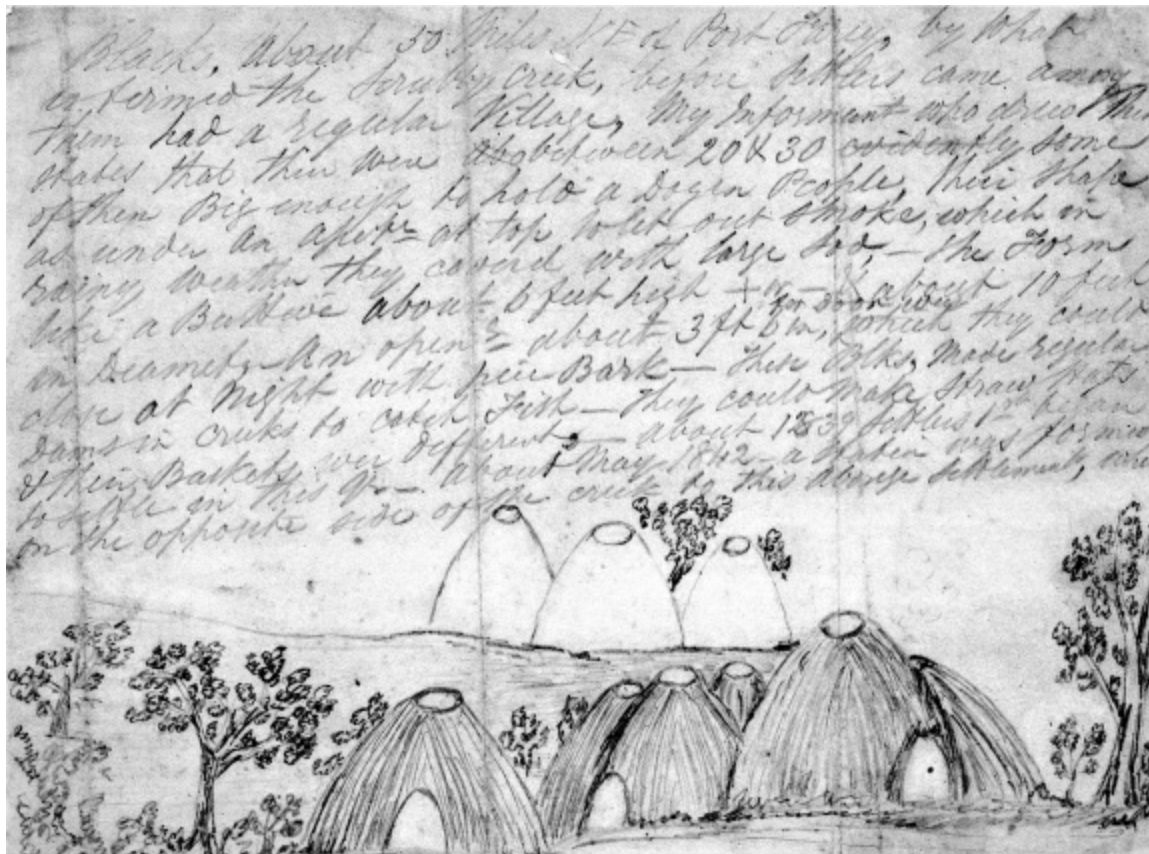 Blacks, About 30 Miles NE of Port Fairy, by What
is termed the Scrubby creek, before settlers came among
them had a regular Village, My Informant who drew This
states that thier were between 20 & 30 evidently some
of them Big enough to hold a Dozen People, Their Shape
as under An at top to let out smoke, which in
rainy weather they coverd with large Sod, – the Form
like a Beehive about 6 feet high + or – about 10 feet
in Deametr – An open.g about 3 ft 6 in, for door way which they could
close at Night with Bark – These Blks, Made regular
Dams in creeks to catch Fish – They could make Straw Hats
& their Baskets were different, – about 1839 settlers 1st began
to settle in this – about May 1842 – a station was forming
on the opposite side of the creek to this aborige settlement,